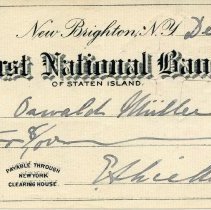 New Brighton, N.Y. De
rst National Ban
OF STATEN ISLAND.
Oswald Müller
PAYABLE THROUGH
NEW YORK
CLEARING HOUSE.